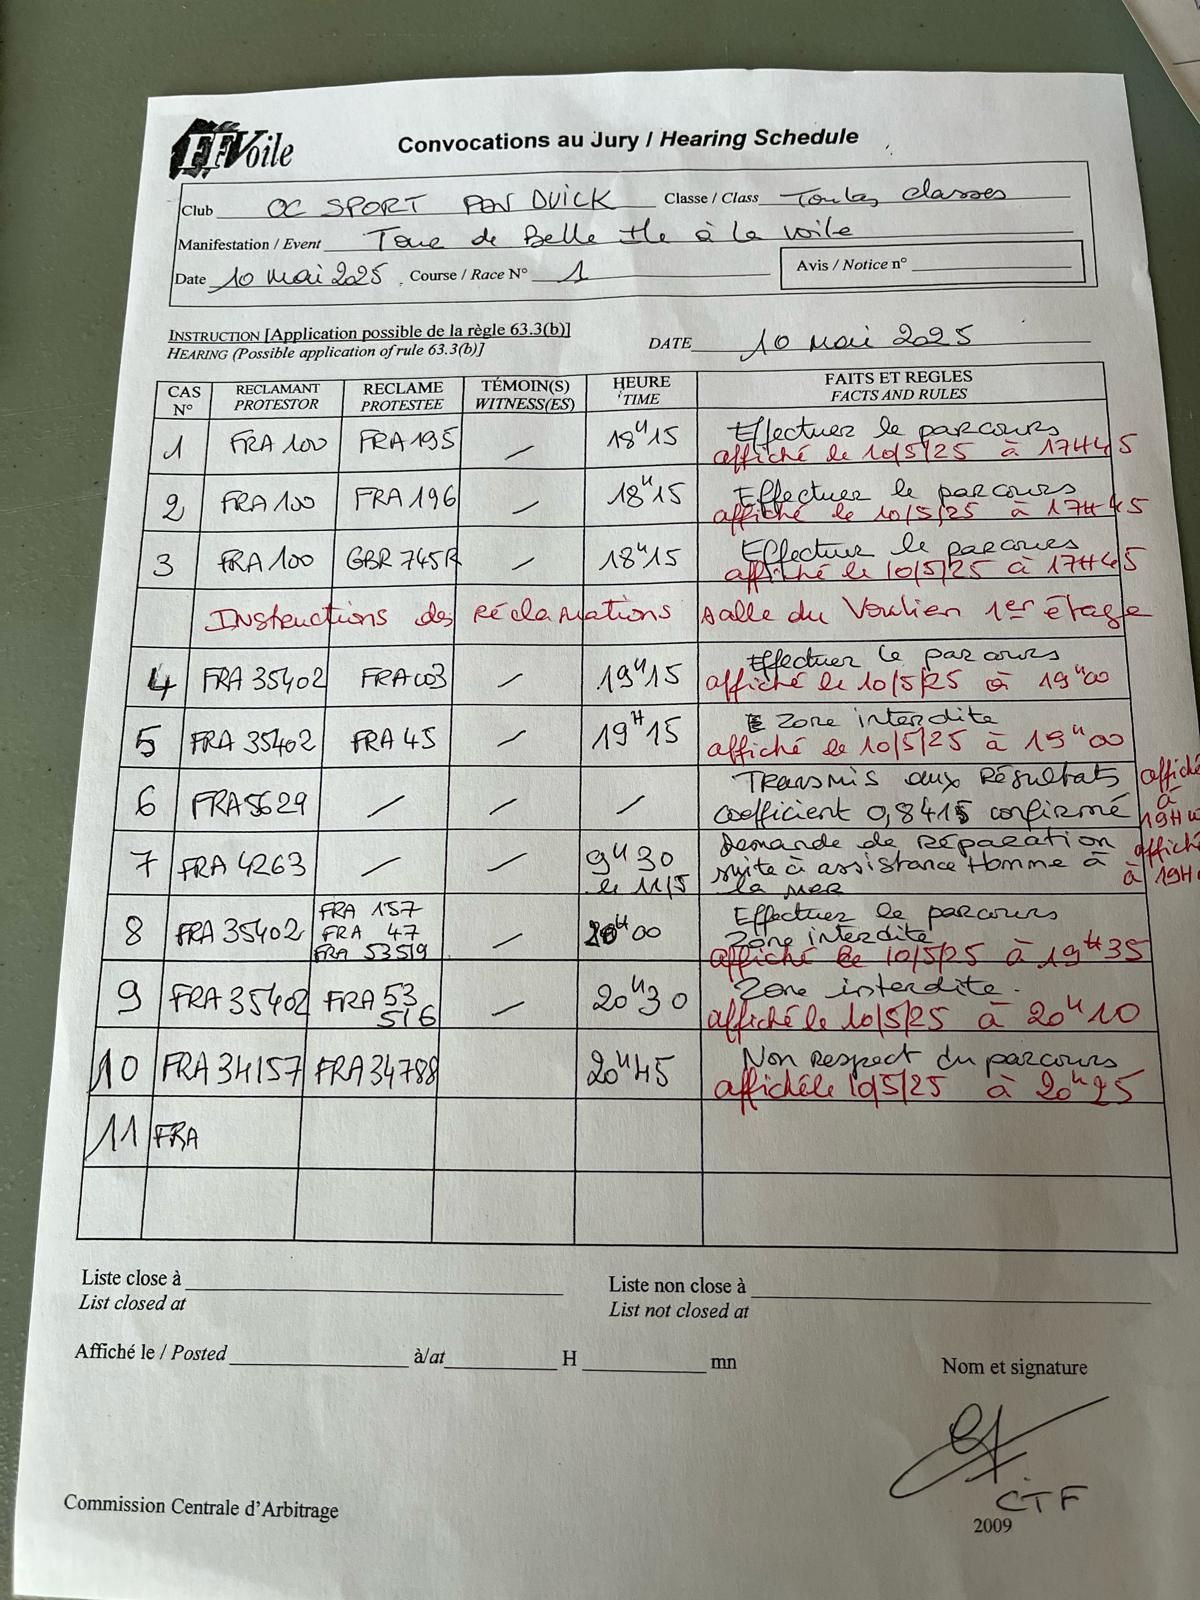 FFVoile
Convocations au Jury / Hearing Schedule
Club OC SPORT PEN DUICK Classe / Class Toutes classes
Manifestation / Event Tour de Belle Ile à la voile
Date 10 mai 2025 Course / Race N° 1
Avis / Notice n°
INSTRUCTION [Application possible de la règle 63.3(b)]
HEARING (Possible application of rule 63.3(b)]
DATE 10 mai 2025
CAS N° RECLAMANT PROTESTOR RECLAME PROTESTEE TÉMOIN(S) WITNESS(ES) HEURE TIME FAITS ET REGLES FACTS AND RULES
1 FRA 100 FRA 195 / 18H15 Effectuer le parcours
affiché le 10/5/25 à 17H45
2 FRA 100 FRA 196 / 18H15 Effectuer le parcours
affiché le 10/5/25 à 17H45
3 FRA 100 GBR 745R / 18H15 Effectuer le parcours
affiché le 10/5/25 à 17H45
Instructions des Réclamations salle du 1er étage
4 FRA 35402 / 19H15 Effectuer le parcours
affiché le 10/5/25 à 19H00
5 FRA 35402 FRA 45 / 19H15 Zone interdite
affiché le 10/5/25 à 19H00
6 FRA 5629 / / / Transmis aux Résultats
coefficient 0,8415 confirmé
affiché à 19H
7 FRA 4263 / / 9H30 le 11/5 Demande de Réparation
suite à assistance Homme à
la mer
affiché à 19H
8 FRA 35402 FRA 157 FRA 47 FRA 53519 / 20H00 Effectuer le parcours
Zone interdite
affiché le 10/5/25 à 19H35
9 FRA 35402 FRA 53 516 / 20H30 Zone interdite.
affiché le 10/5/25 à 20H10
10 FRA 34157 FRA 34788 20H45 Non respect du parcours
affiché le 10/5/25 à 20H25
11 FRA
Liste close à
List closed at
Liste non close à
List not closed at
Affiché le / Posted à/at H mn
Nom et signature
CTF
Commission Centrale d'Arbitrage
2009